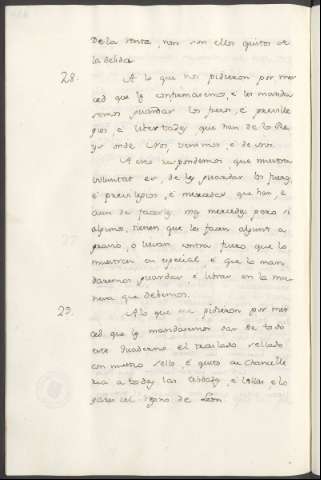 de la renta, non son ellos quitos de
la debida.
28. A lo que nos pidieron por mer
ced que les confirmaremos, e les manda
semos guardar los fueros, e preville
gios, e libertades que han de los Re
yes onde Nos venimos e de nos.
A esto respondemos que nuestra
voluntat es, de les guardar los fueros,
e previlegios, e mercedes que han, e
aun de facerles mas mercedes, pero si
algunos tienen que les facen algunt a
gravio, o lievan contra fuero que lo
muestren en especial, e que lo man
daremos guardar e librar en la ma
nera que debemos.
29. A lo que nos pidieron por mer
ced que les mandaremos dar de todo
este Quaderno el traslado sellado
con nuestro sello, e quito de Chancelle
ria a todas las cibdades, e villas, e lo
gares del Regno de Leon.